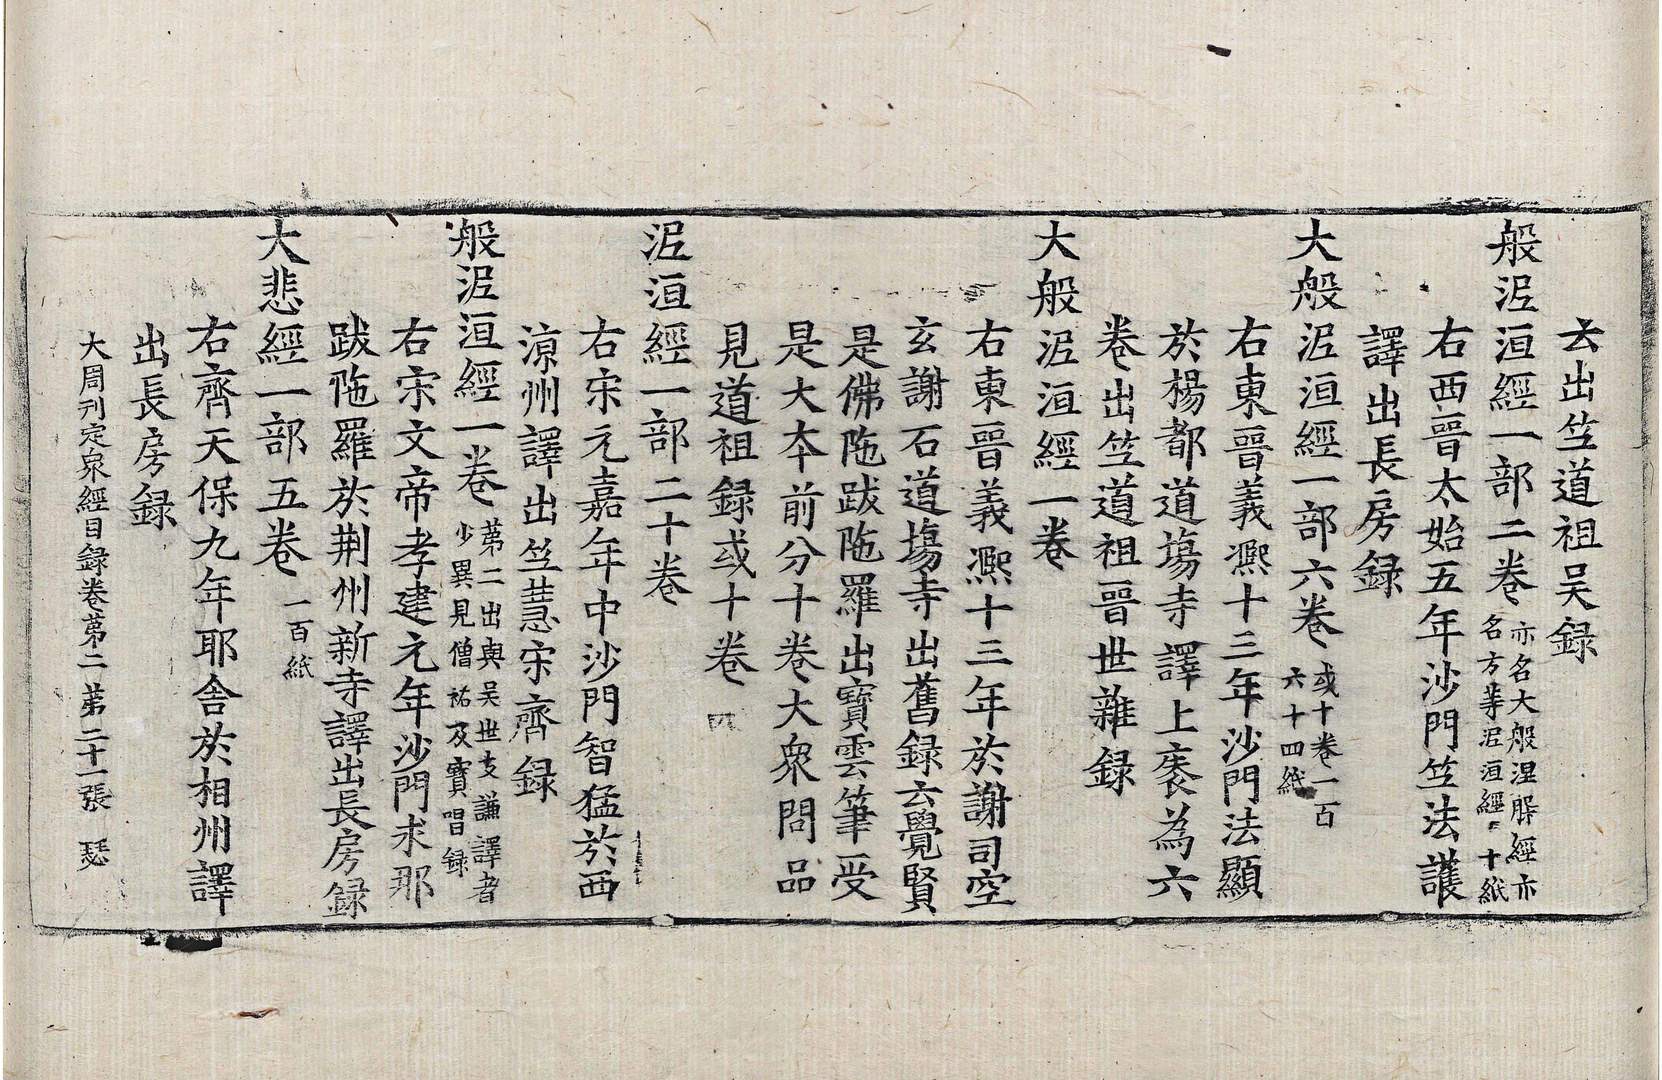 云出竺道祖吴録
般泥洹經一部二卷亦名大般涅槃經亦名方等泥洹經 十紙
右西晉太始五年沙門竺法護
譯出長房録
大般泥洹經一部六卷或十卷一百六十四紙
右東晉義凞十三年沙門法顯
於楊都道場寺譯上袠為六
卷出竺道祖晉世雜録
大般泥洹經一卷
右東晉義凞十三年於謝司空
玄謝石道場寺出舊録云覺賢
是佛陁跋陁羅出寶雲筆受
是大夲前分十卷大衆問品
見道祖録或十卷
泥洹經一部二十卷
右宋元嘉年中沙門智猛於西
涼州譯出竺慧宋齊録
般泥洹經一卷第二出與吴世支謙譯者少異見僧祐及寶唱録
右宋文帝孝建元年沙門求那
跋陁羅於荆州新寺譯出長房録
大悲經一部五卷一百紙
右齊天保九年耶舍於相州譯
出長房録
大周刊定衆經目録卷第二 第二十一張 瑟